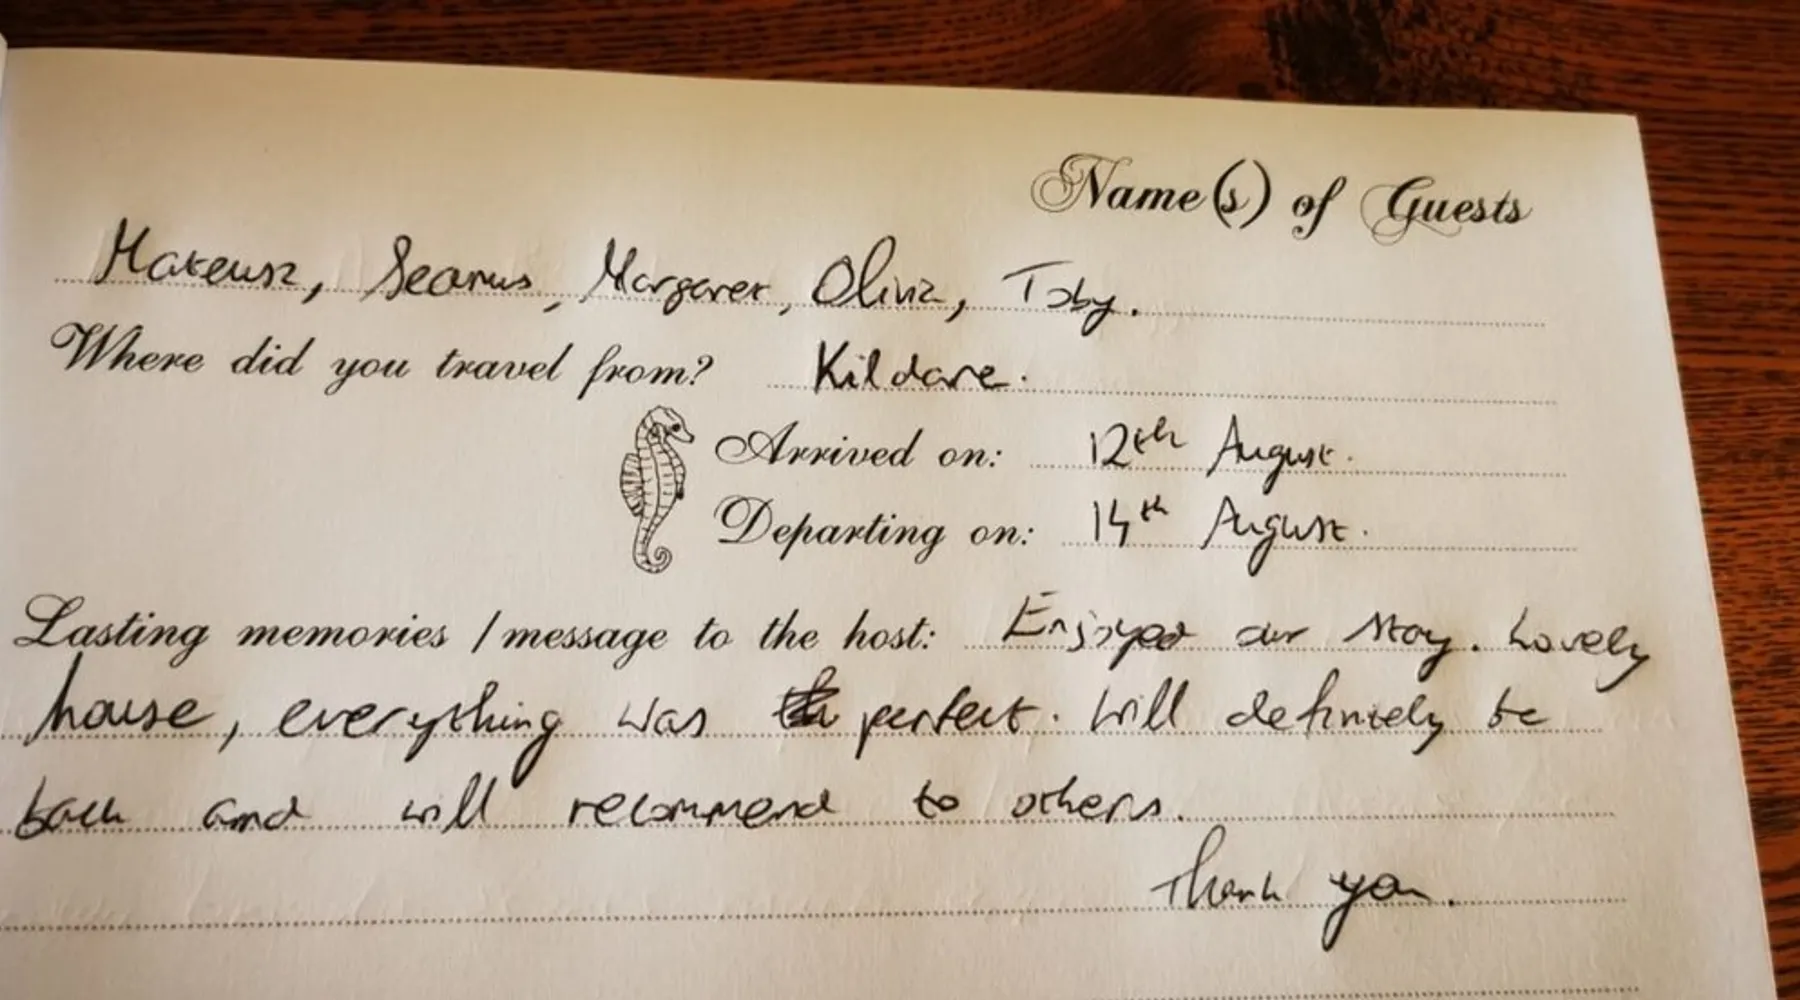 Name(s) of Guests
Mateusz, Seamus, Margaret, Olivia, Toby.
Where did you travel from? Kildare.
Arrived on: 12th August.
Departing on: 14th August.
Lasting memories / message to the host: Enjoyed our stay. Lovely
house, everything was perfect. Will definitely be
back and will recommend to others.
Thank you.